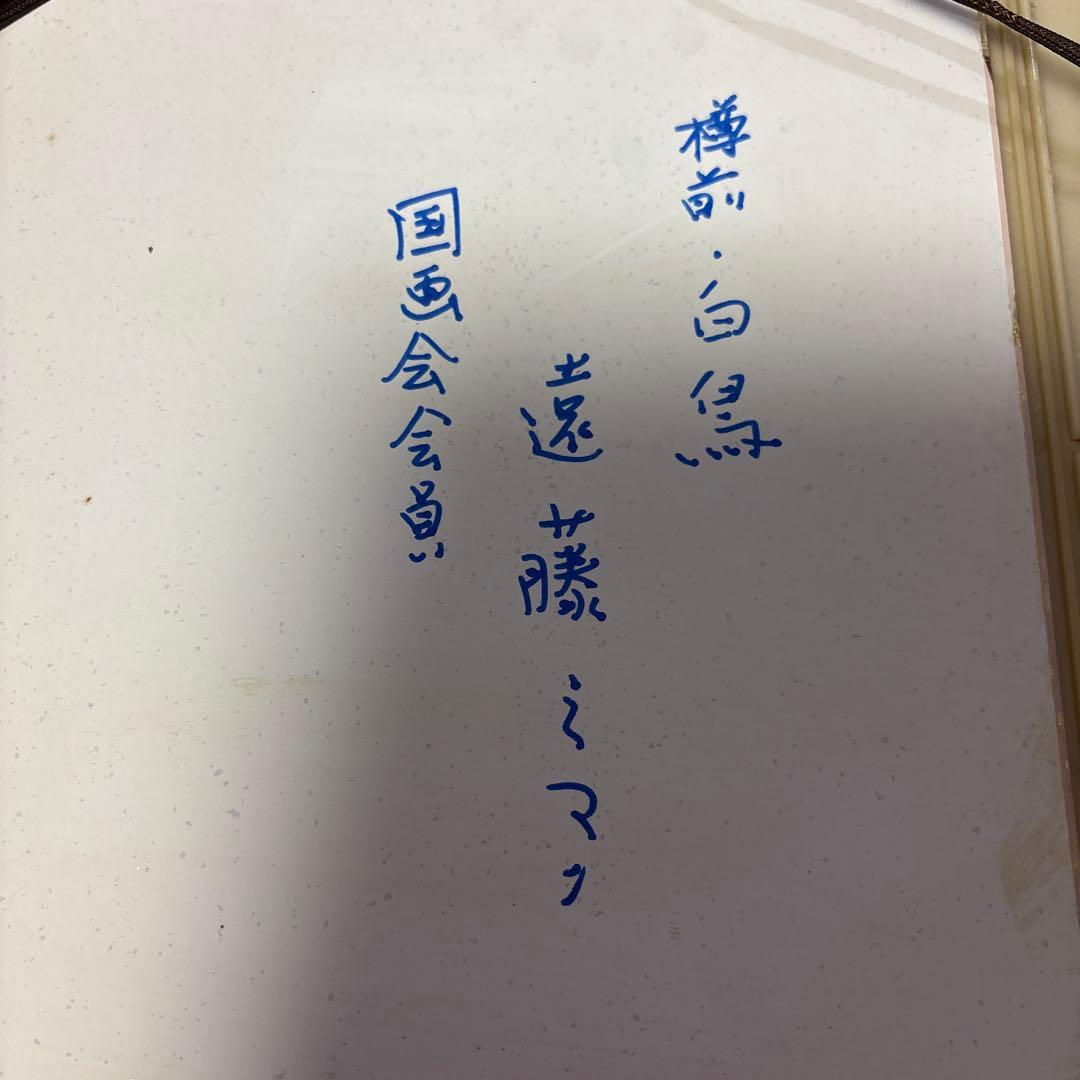 樽前・白鳥
遠藤ミマツ
国画会会員